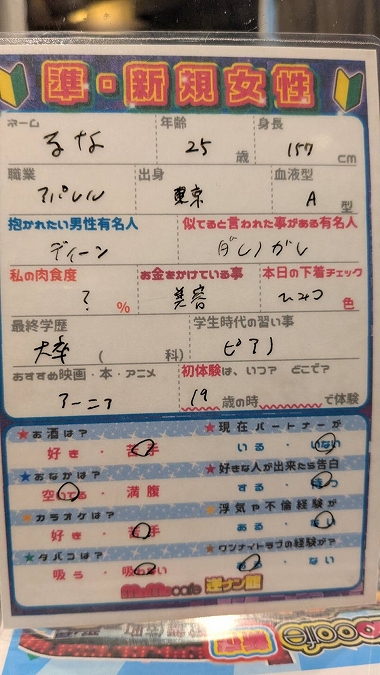 準・新規女性
ネーム 年齢 身長
るな 25 歳 157 cm
職業 出身 血液型
アパレル 東京 A 型
抱かれたい男性有名人 似てると言われた事がある有名人
ディーン ダレノガレ
私の肉食度 お金をかけている事 本日の下着チェック
? % 美容 ひみつ 色
最終学歴 学生時代の習い事
大卒 ( 科) ピアノ
おすすめ映画・本・アニメ 初体験は、いつ? どこで?
19 歳の時 で体験
★お酒は? ★現在パートナーが
好き・苦手 いる・いない
★おなかは? ★好きな人が出来たら告白
空いてる・満腹 する・待つ
★カラオケは? ★浮気や不倫経験が
好き・苦手 ある・ない
★タバコは? ★ワンナイトラブの経験が?
吸う・吸わない ある・ない
cafe 逆ナン館